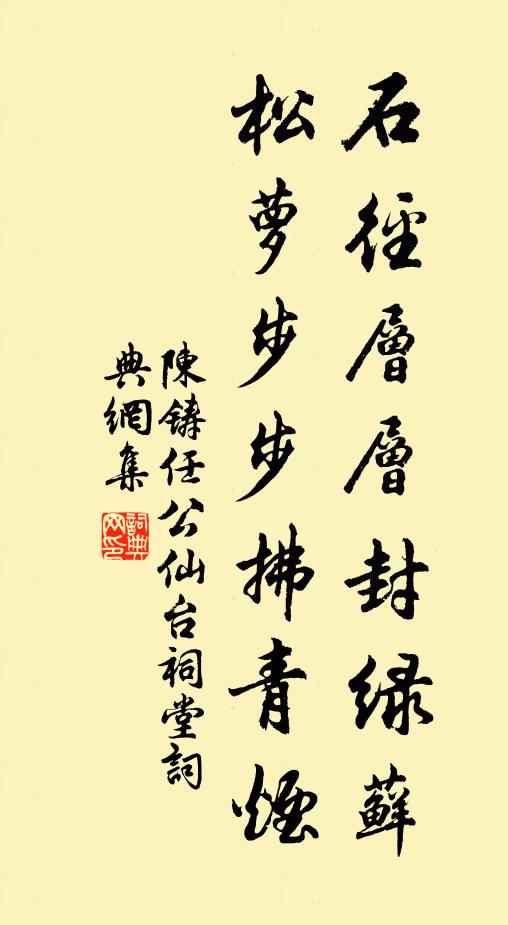 石徑層層封綠蘚
松蘿步步拂青煙
陳鑄任公仙台祠堂詞
典網集
詞典網印